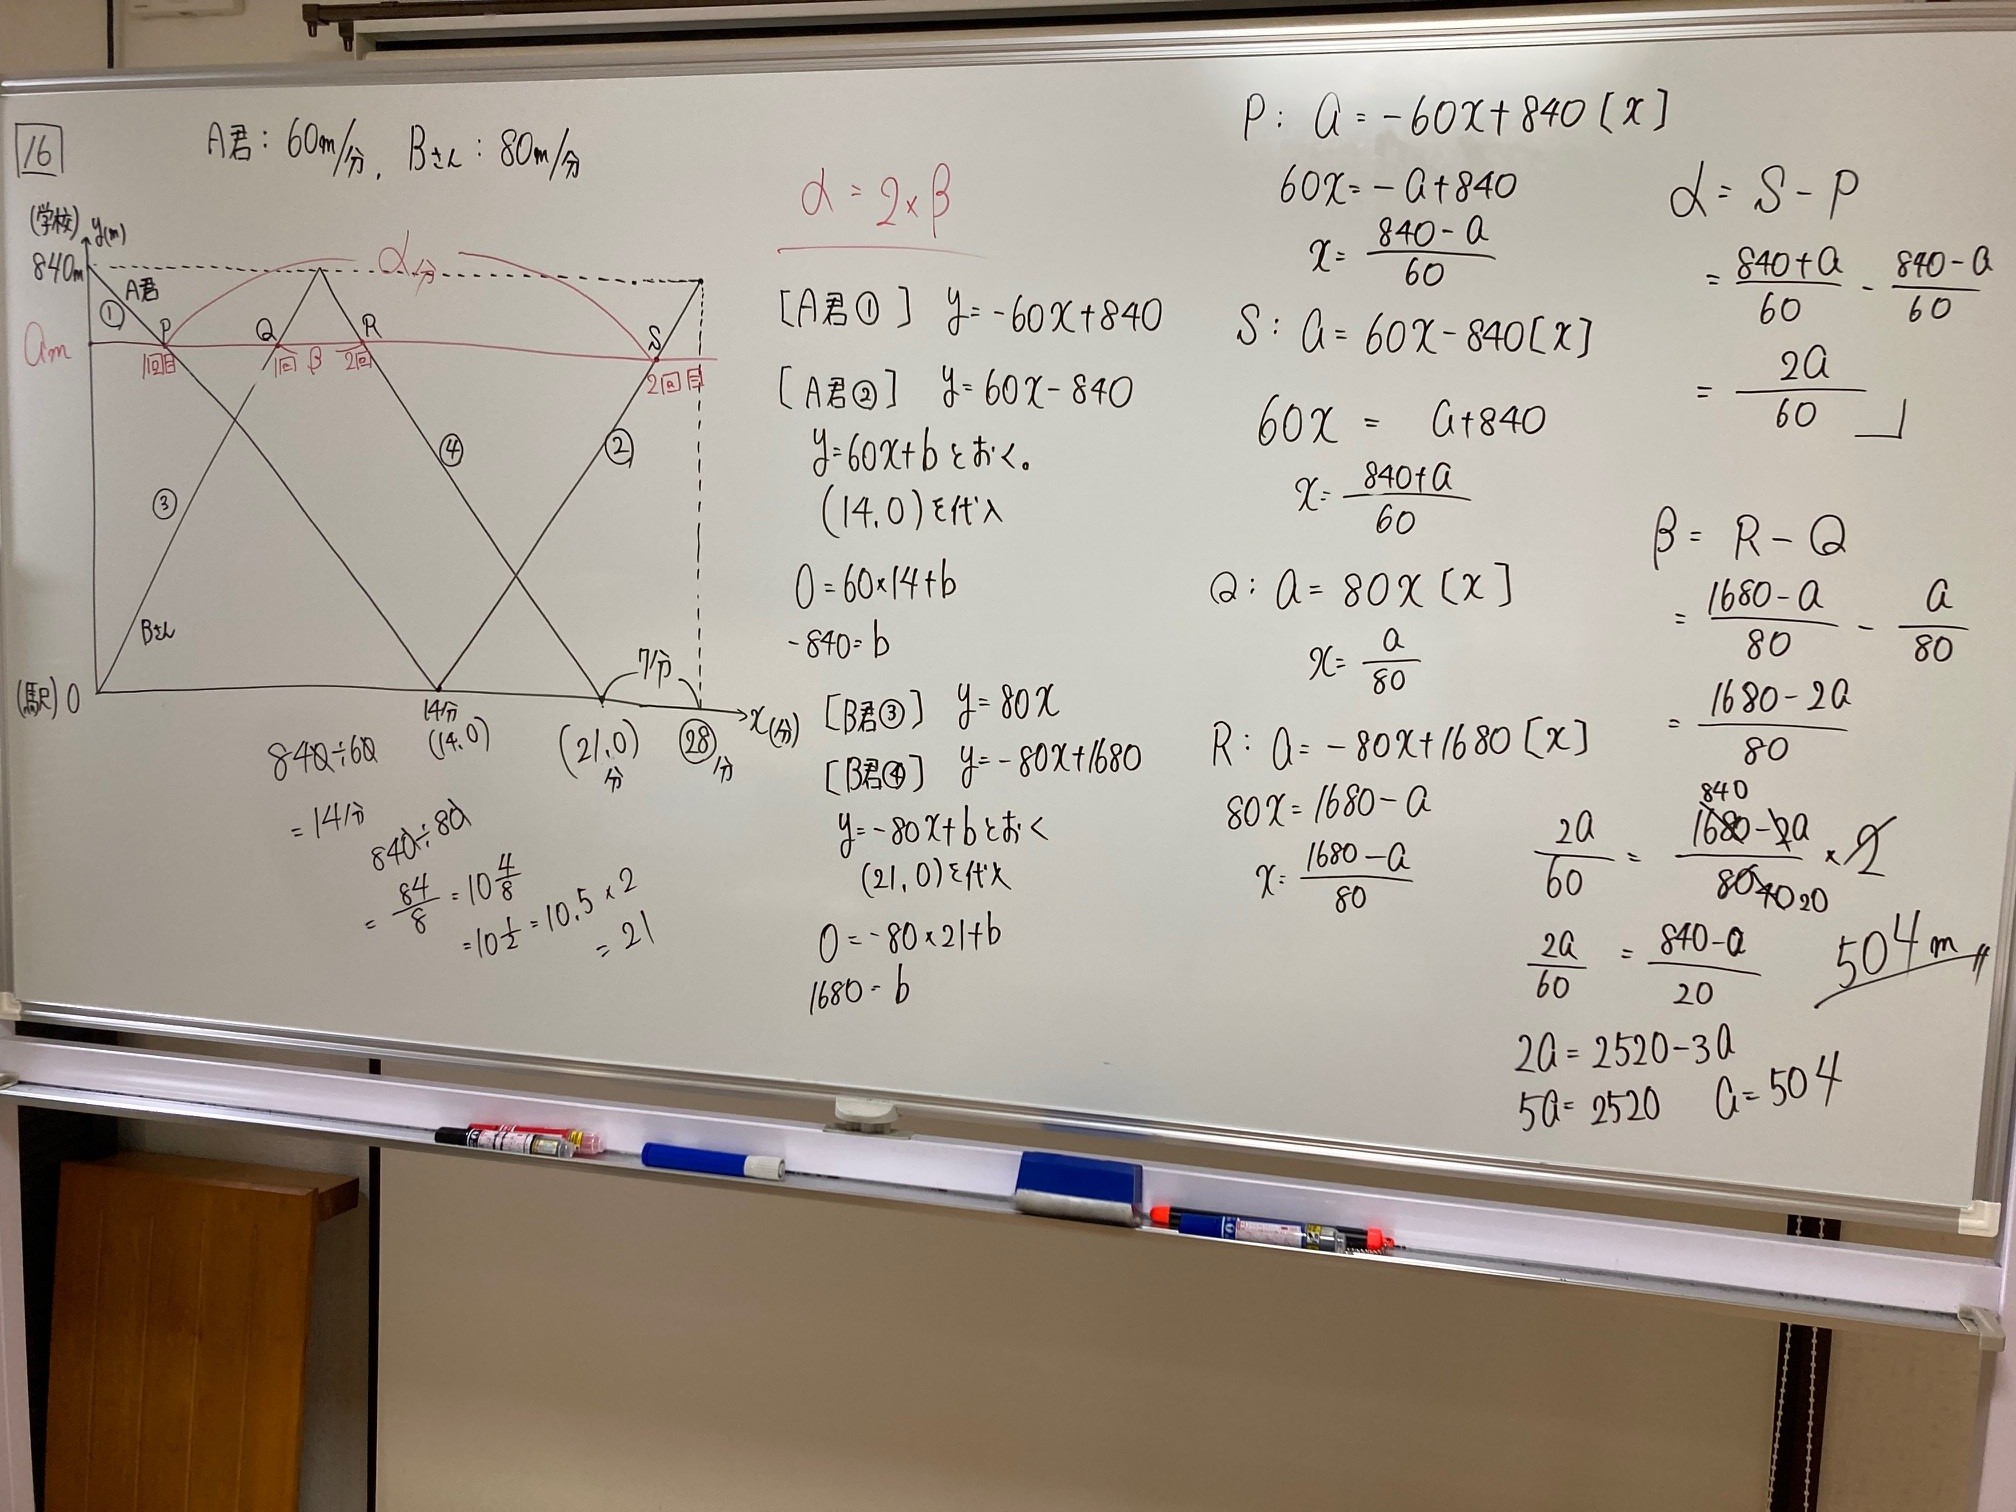 16
A君: 60m/分, Bさん: 80m/分
(学校) y(m)
840m
A君
①
P
Q
R
S
α分
am
1回目
1回
β
2回
2回目
③
④
②
Bさん
(駅) 0
14分
(14.0)
(21.0)
分
7分
28分
x(分)
840÷60
=14分
840÷80
= 84/8 = 10 4/8
= 10 1/2 = 10.5 × 2
= 21
α = 2×β
[A君①] y=-60x+840
[A君②] y=60x-840
y=60x+bとおく。
(14.0)を代入
0=60×14+b
-840=b
[B君③] y=80x
[B君④] y=-80x+1680
y=-80x+bとおく
(21,0)を代入
0=-80×21+b
1680=b
P: a=-60x+840 [x]
60x=-a+840
x= 840-a/60
S: a=60x-840[x]
60x = a+840
x= 840+a/60
Q: a=80x [x]
x= a/80
R: a=-80x+1680 [x]
80x=1680-a
x= 1680-a/80
α= S-P
= 840+a/60 - 840-a/60
= 2a/60
β= R-Q
= 1680-a/80 - a/80
= 1680-2a/80
840
2a/60 = 1680-2a/80 ×2
40 20
2a/60 = 840-a/20
504m
2a=2520-3a
5a=2520 a=504